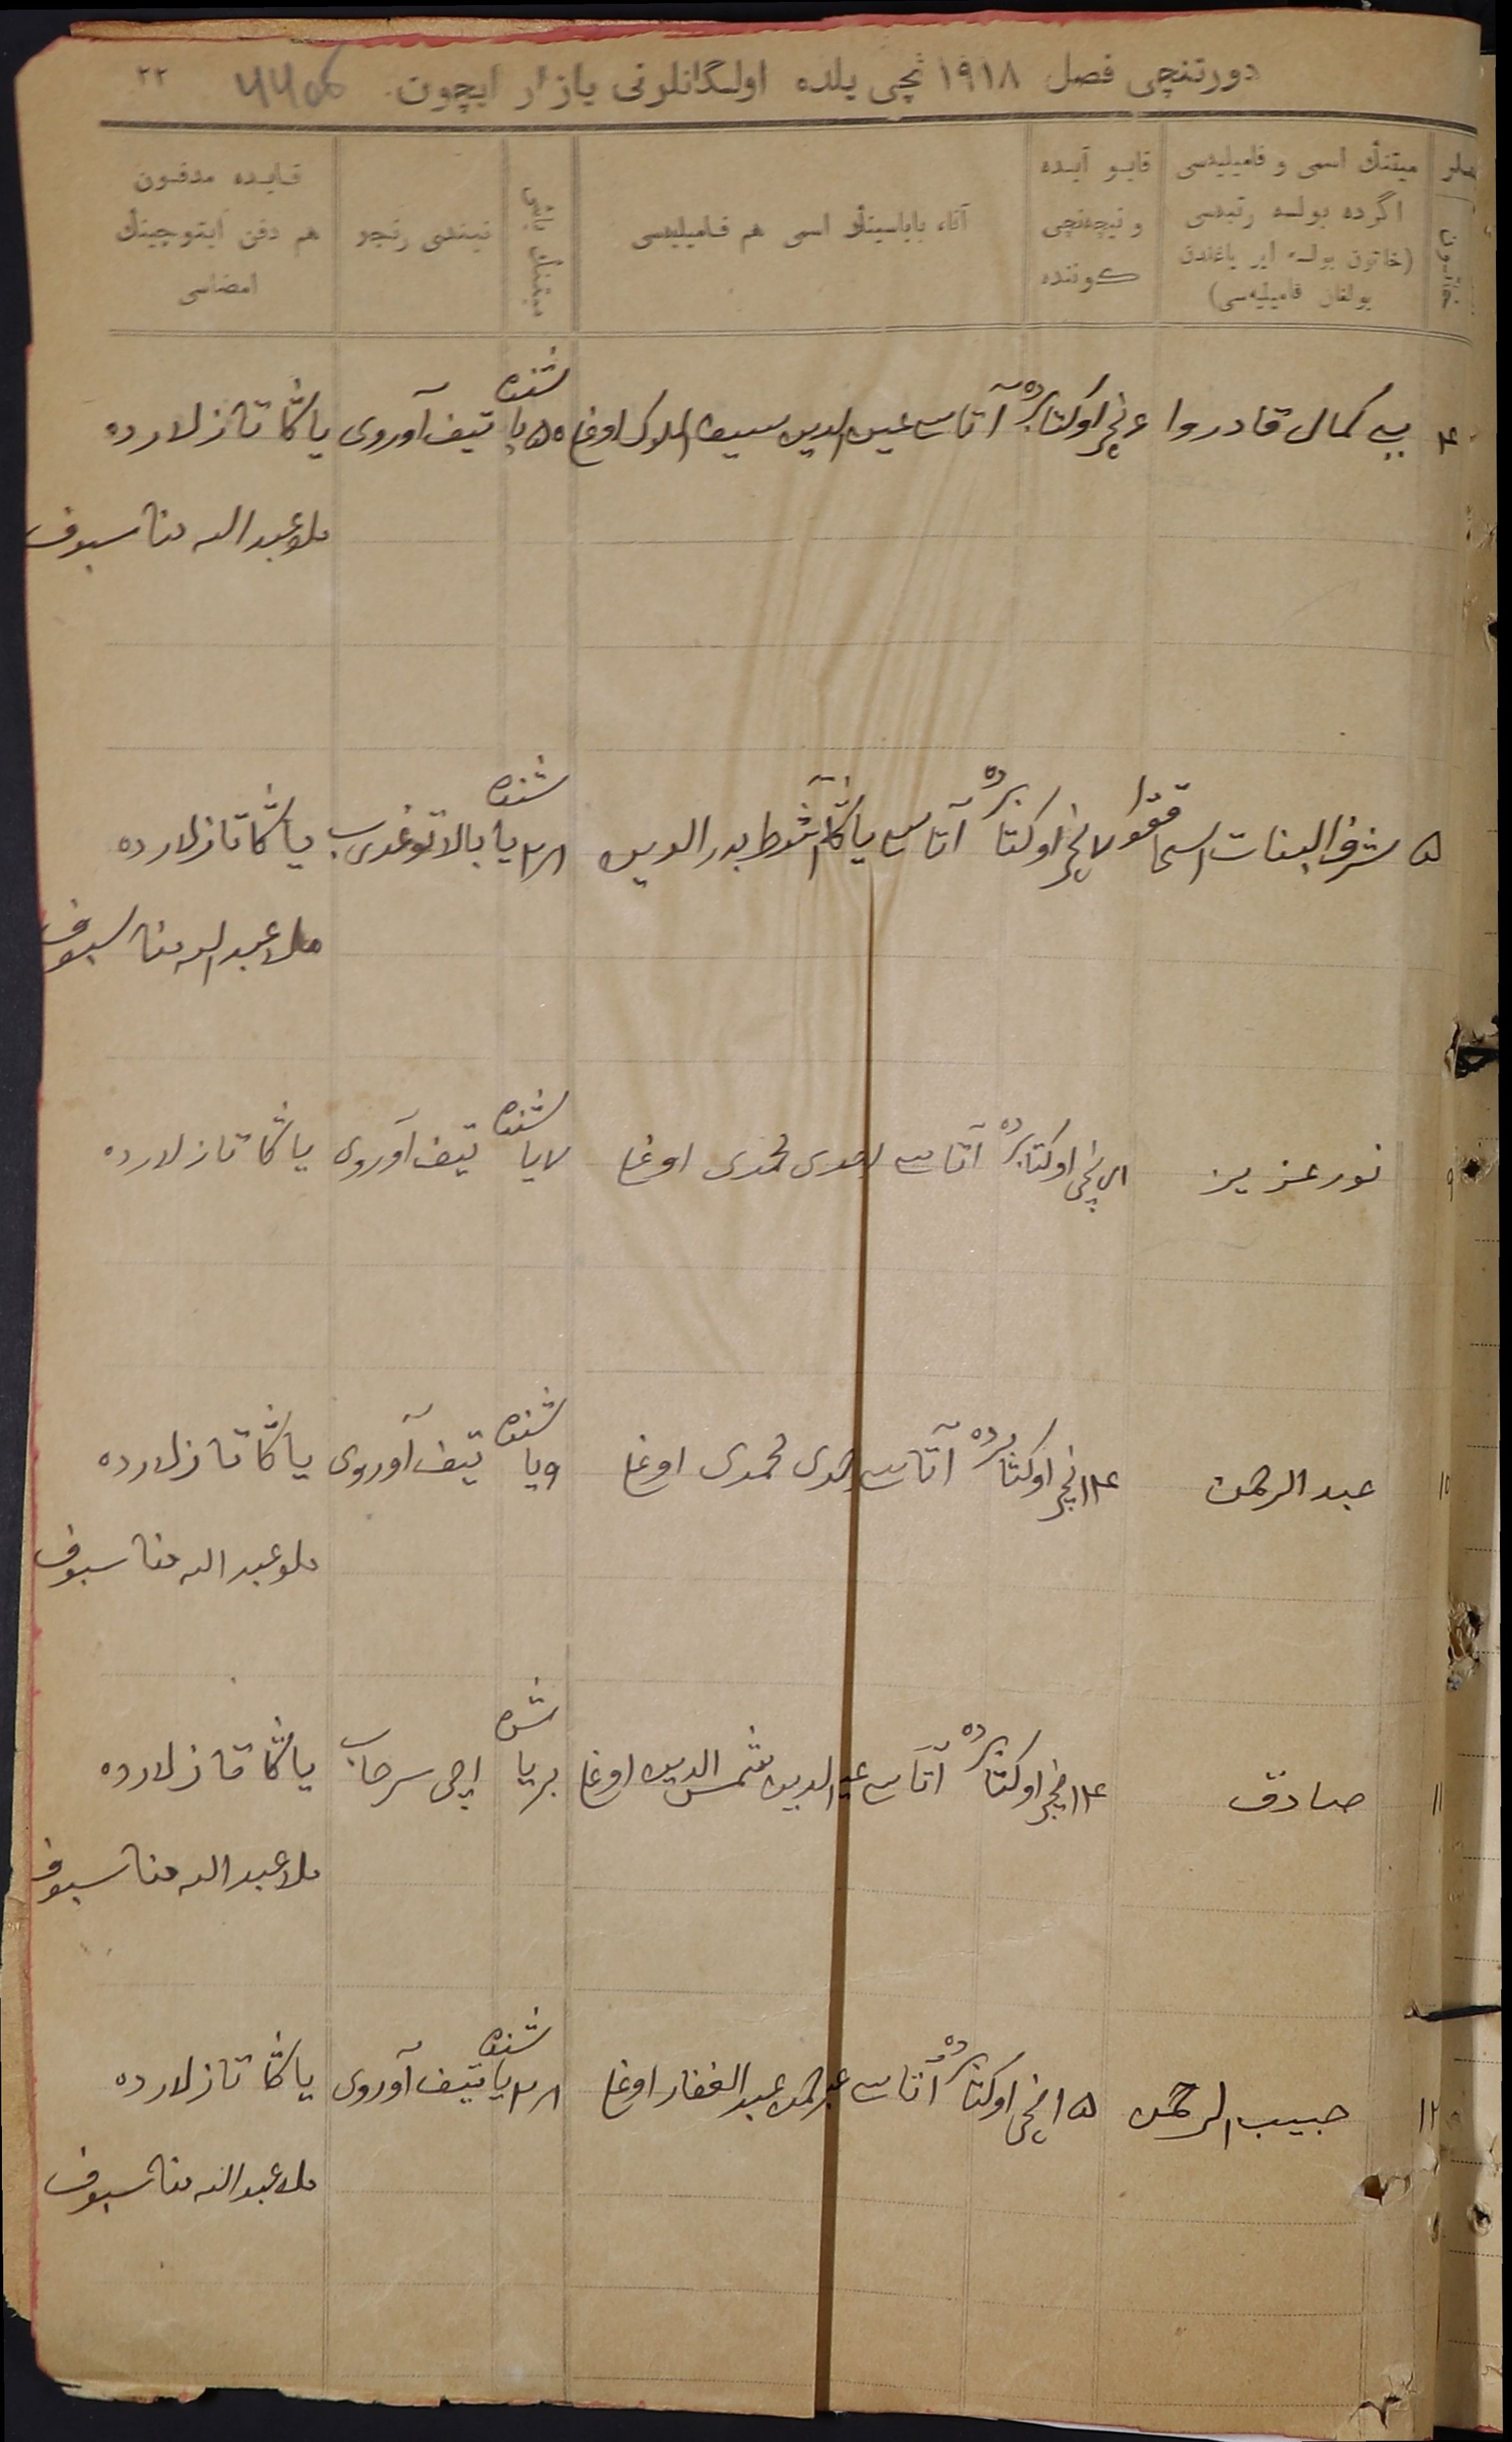 دورتنچی فصل ۱۹۱۸ نچی یلده اولگانلرنی یازار ایچون. ۲۲
میتنڭ اسمی و فامیلیەسی اگرده بولسه رتبەسی (خاتون بولسه ایر یاغندن بولغان فامیلیەسی)
قایو آیده و نیچەنچی کوننده
آتا، باباسینڭ اسمی هم فامیلیەسی
میتنڭ یاشی
نیندی رنجو
قایده مدفون هم دفن ایتوچینڭ امضاسی
۴ بی کمال قادروا ۶ نچی اوکتابرده آتاسی عین الدین سیف الملوک اوغلی ۵۵ یاشنده تیف آوروی یاڭا تازلارده
ملا عبدالله مناسبوف
۵ شرف البنات اسحاقوا ۷ نچی اوکتابرده آتاسی بدرالدین ۳۸ یاشنده بالا توغدرب یاڭا تازلارده
ملا عبدالله مناسبوف
۹ نورعزیز نچی اوکتابرده آتاسی محمدی اوغلی ۷ یاشنده تیف آوروی یاڭا تازلارده
۱۰ عبدالرحمن ۱۴ نچی اوکتابرده آتاسی محمدی اوغلی ۹ یاشنده تیف آوروی یاڭا تازلارده
ملا عبدالله مناسبوف
۱۱ صادق ۱۴ نچی اوکتابرده آتاسی شمس الدین اوغلی بر یاشده یاڭا تازلارده
ملا عبدالله مناسبوف
۱۲ حبیب الرحمن ۱۵ نچی اوکتابرده آتاسی عبدالغفار اوغلی ۳۸ یاشنده تیف آوروی یاڭا تازلارده
ملا عبدالله مناسبوف